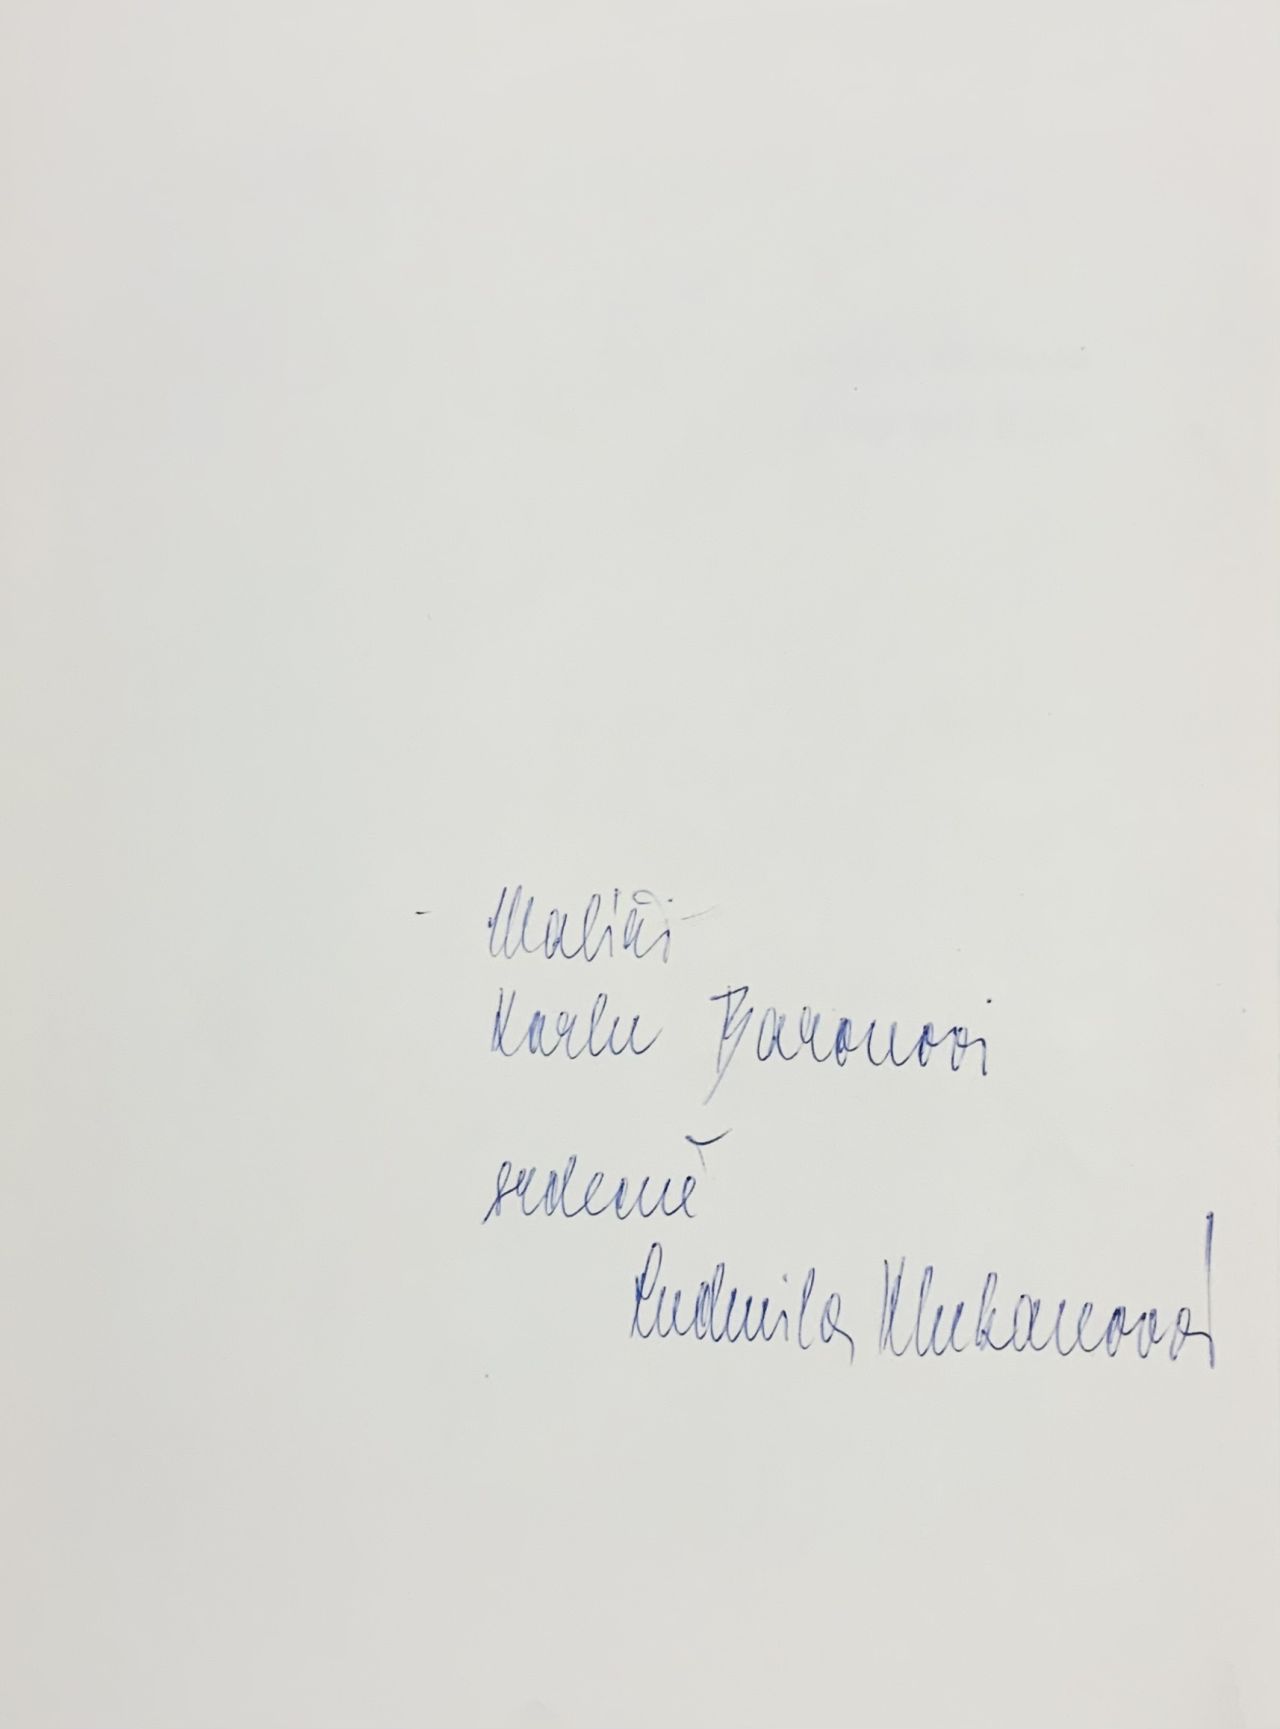 Malíři
Karlu Baronovi
srdečně
Ludmila Klukanová